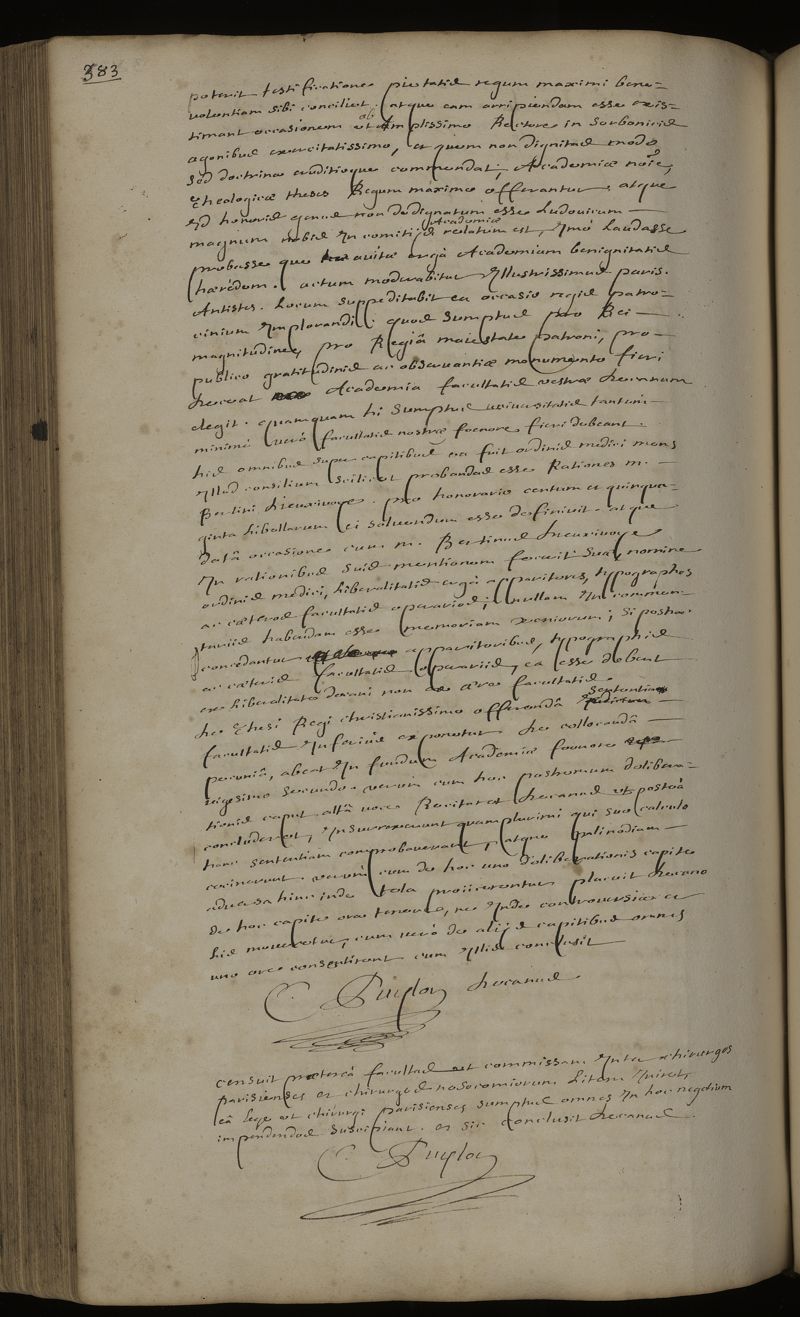 383
poterit testificatione pietatis regum maximi bene=
volentiam sibi conciliet. atque eam arripiendam esse exis=
timant occasionem ut ab Amplissimo Rectore in sorbonicis
agonibus exercitatissimo, et quem non dignitas modo
sed doctrina eruditioque commendat, Academiæ noīe,
Theologicæ theses Regum maximo offerantur. atque
id honoris genus non dedignatum esse Ludovicum
magnum nobis In comitijs Academiæ relatum est, Imò laudasse
probasse que avitæ ergà Academiam benignitatis
hæredem. actum moderabitur Illustrissimus paris.
Antistes. Locum suppeditabit ea occasio regis patro=
cinium Implorandi: quod sumptus pro Rei
magnitudine, pro Regiâ maiestate patroni, pro
publico gratitudinis ac observantiæ monumento fieri
deceat Academia facultatis vestræ decanum
elegit. quamquam hi sumptus universitatis tantùm
minimè verò facultatis nostræ foenore fieri debeant.
his omnibus super capitibus ea fuit ordinis medici mens
Illud consilium scilicet probandas esse Rationes m.
Bertini Dieuxivoye. pro honorario centum et quinqua=
ginta libellarum ei solvendum esse definivit. atque
datâ occasione cum m. Bertinus Dieuxivoye
In rationibus suis mentionem fecerit sua, nomine
ordinis medici, liberalitatis ergà apparitores, typographos
ac cæteros facultatis operarios; nullam In commen=
tariis habendam esse memoriam xeniorum; si posthac
concedantur apparitoribus, typographis
ac cæteris facultatis operariis, ea esse debent
ex liberalitate decani non ex ære facultatis.
de Thesi Regi christianissimo offerendâ sententia
facultatis Inferius exponetur de collocandâ
pecuniâ, abeat In fundum Academiæ foenore
vigesimo secundo. verùm cum hoc postremum delibera=
tionis caput altâ voce Recitaret decanus ut posteà
concluderet, Insurrexerunt quamplurimi qui suo calculo
hanc sententiam comprobaverant, atque palinodiam
cecinerunt. verùm cum de hoc uno deliberationis capite
adversa hinc inde tela proiicerentur placuit decano
de hoc capite ora tenere, ne Inde controversiæ et
lis moveretur, cum verò de alijs capitibus omnes
uno ore consentirent cum Illis conclusit
C Puylon decanus
censuit prætereà facultas ut commissam Inter chirurgos
parisienses et chirurgos nosocomiorum litem Iniret,
eâ lege ut chirurgi parisienses sumptus omnes In hoc negotium
impendendos suscipiant. et sic conclusit decanus.
C Puylon